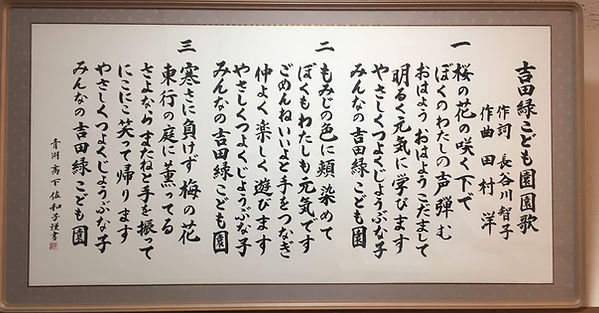 吉田緑こども園園歌
作詞 長谷川智子
作曲 田村 洋
一 桜の花の咲く下で
ぼくのわたしの声弾む
おはよう おはよう こだまして
明るく元気に学びます
やさしくつよくじょうぶな子
みんなの吉田緑こども園
二 もみじの色に頬染めて
ぼくもわたしも元気です
ごめんねいいよと手をつなぎ
仲よく楽しく遊びます
やさしくつよくじょうぶな子
みんなの吉田緑こども園
三 寒さに負けず 梅の花
東行の庭に薫ってる
さよなら またねと手を振って
にこにこ笑って帰ります
やさしくつよくじょうぶな子
みんなの吉田緑こども園
青洲 高下佐和子謹書